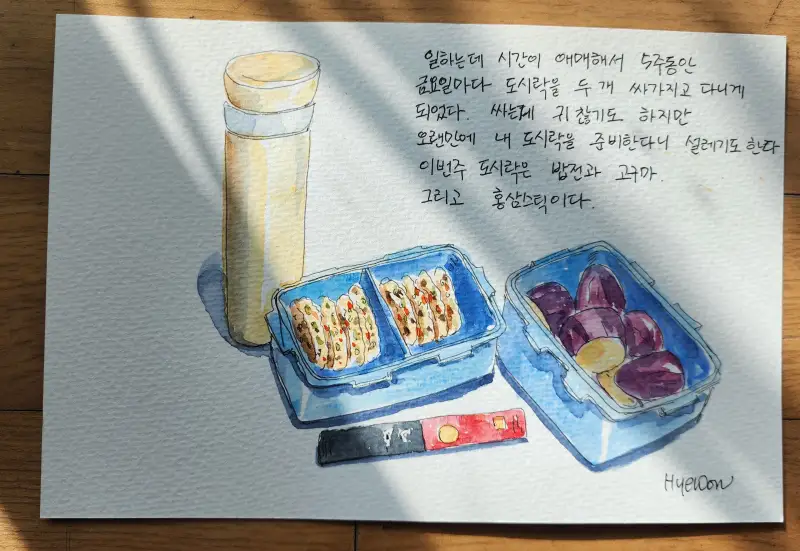 일하는데 시간이 애매해서 5주동안
금요일마다 도시락을 두 개 싸가지고 다니게
되었다. 싸는게 귀찮기도 하지만
오랜만에 내 도시락을 준비한다니 설레기도 한다
이번주 도시락은 밥전과 고구마.
그리고 홍삼스틱이다.
HyeWon